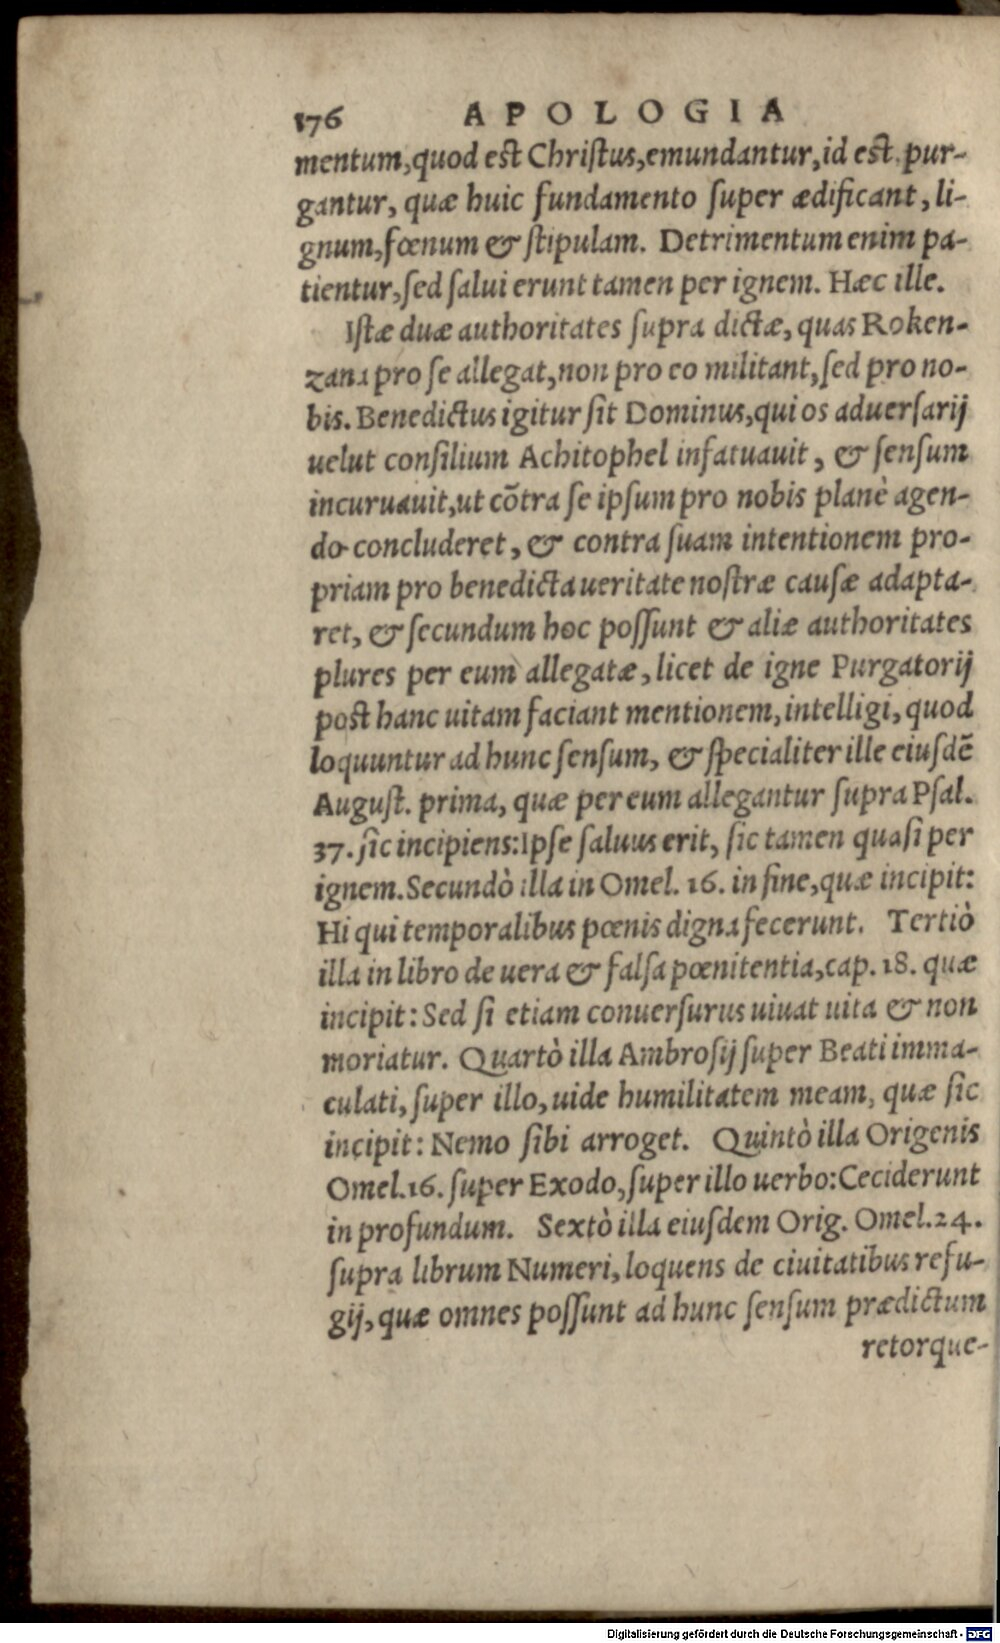 176 APOLOGIA
mentum, quod est Christus, emundantur, id est, pur-
gantur, quæ huic fundamento super ædificant, li-
gnum, fœnum & stipulam. Detrimentum enim pa-
tientur, sed salui erunt tamen per ignem. Hæc ille.
Istæ duæ authoritates supra dictæ, quas Roken-
zana pro se allegat, non pro eo militant, sed pro no-
bis. Benedictus igitur sit Dominus, qui os aduersarij
uelut consilium Achitophel infatuauit, & sensum
incuruauit, ut cõtra se ipsum pro nobis planè agen-
do concluderet, & contra suam intentionem pro-
priam pro benedicta ueritate nostræ causæ adapta-
ret, & secundum hoc possunt & aliæ authoritates
plures per eum allegatæ, licet de igne Purgatorij
post hanc uitam faciant mentionem, intelligi, quod
loquuntur ad hunc sensum, & specialiter ille eiusdẽ
August. prima, quæ per eum allegantur supra Psal.
37. sic incipiens: Ipse saluus erit, sic tamen quasi per
ignem. Secundò illa in Omel. 16. in fine, quæ incipit:
Hi qui temporalibus pœnis digna fecerunt. Tertiò
illa in libro de uera & falsa pœnitentia, cap. 18. quæ
incipit: Sed si etiam conuersurus uiuat uita & non
moriatur. Quartò illa Ambrosij super Beati imma-
culati, super illo, uide humilitatem meam, quæ sic
incipit: Nemo sibi arroget. Quintò illa Origenis
Omel. 16. super Exodo, super illo uerbo: Ceciderunt
in profundum. Sextò illa eiusdem Orig. Omel. 24.
supra librum Numeri, loquens de ciuitatibus refu-
gij, quæ omnes possunt ad hunc sensum prædictum
retorque-
Digitalisierung gefördert durch die Deutsche Forschungsgemeinschaft - DFG